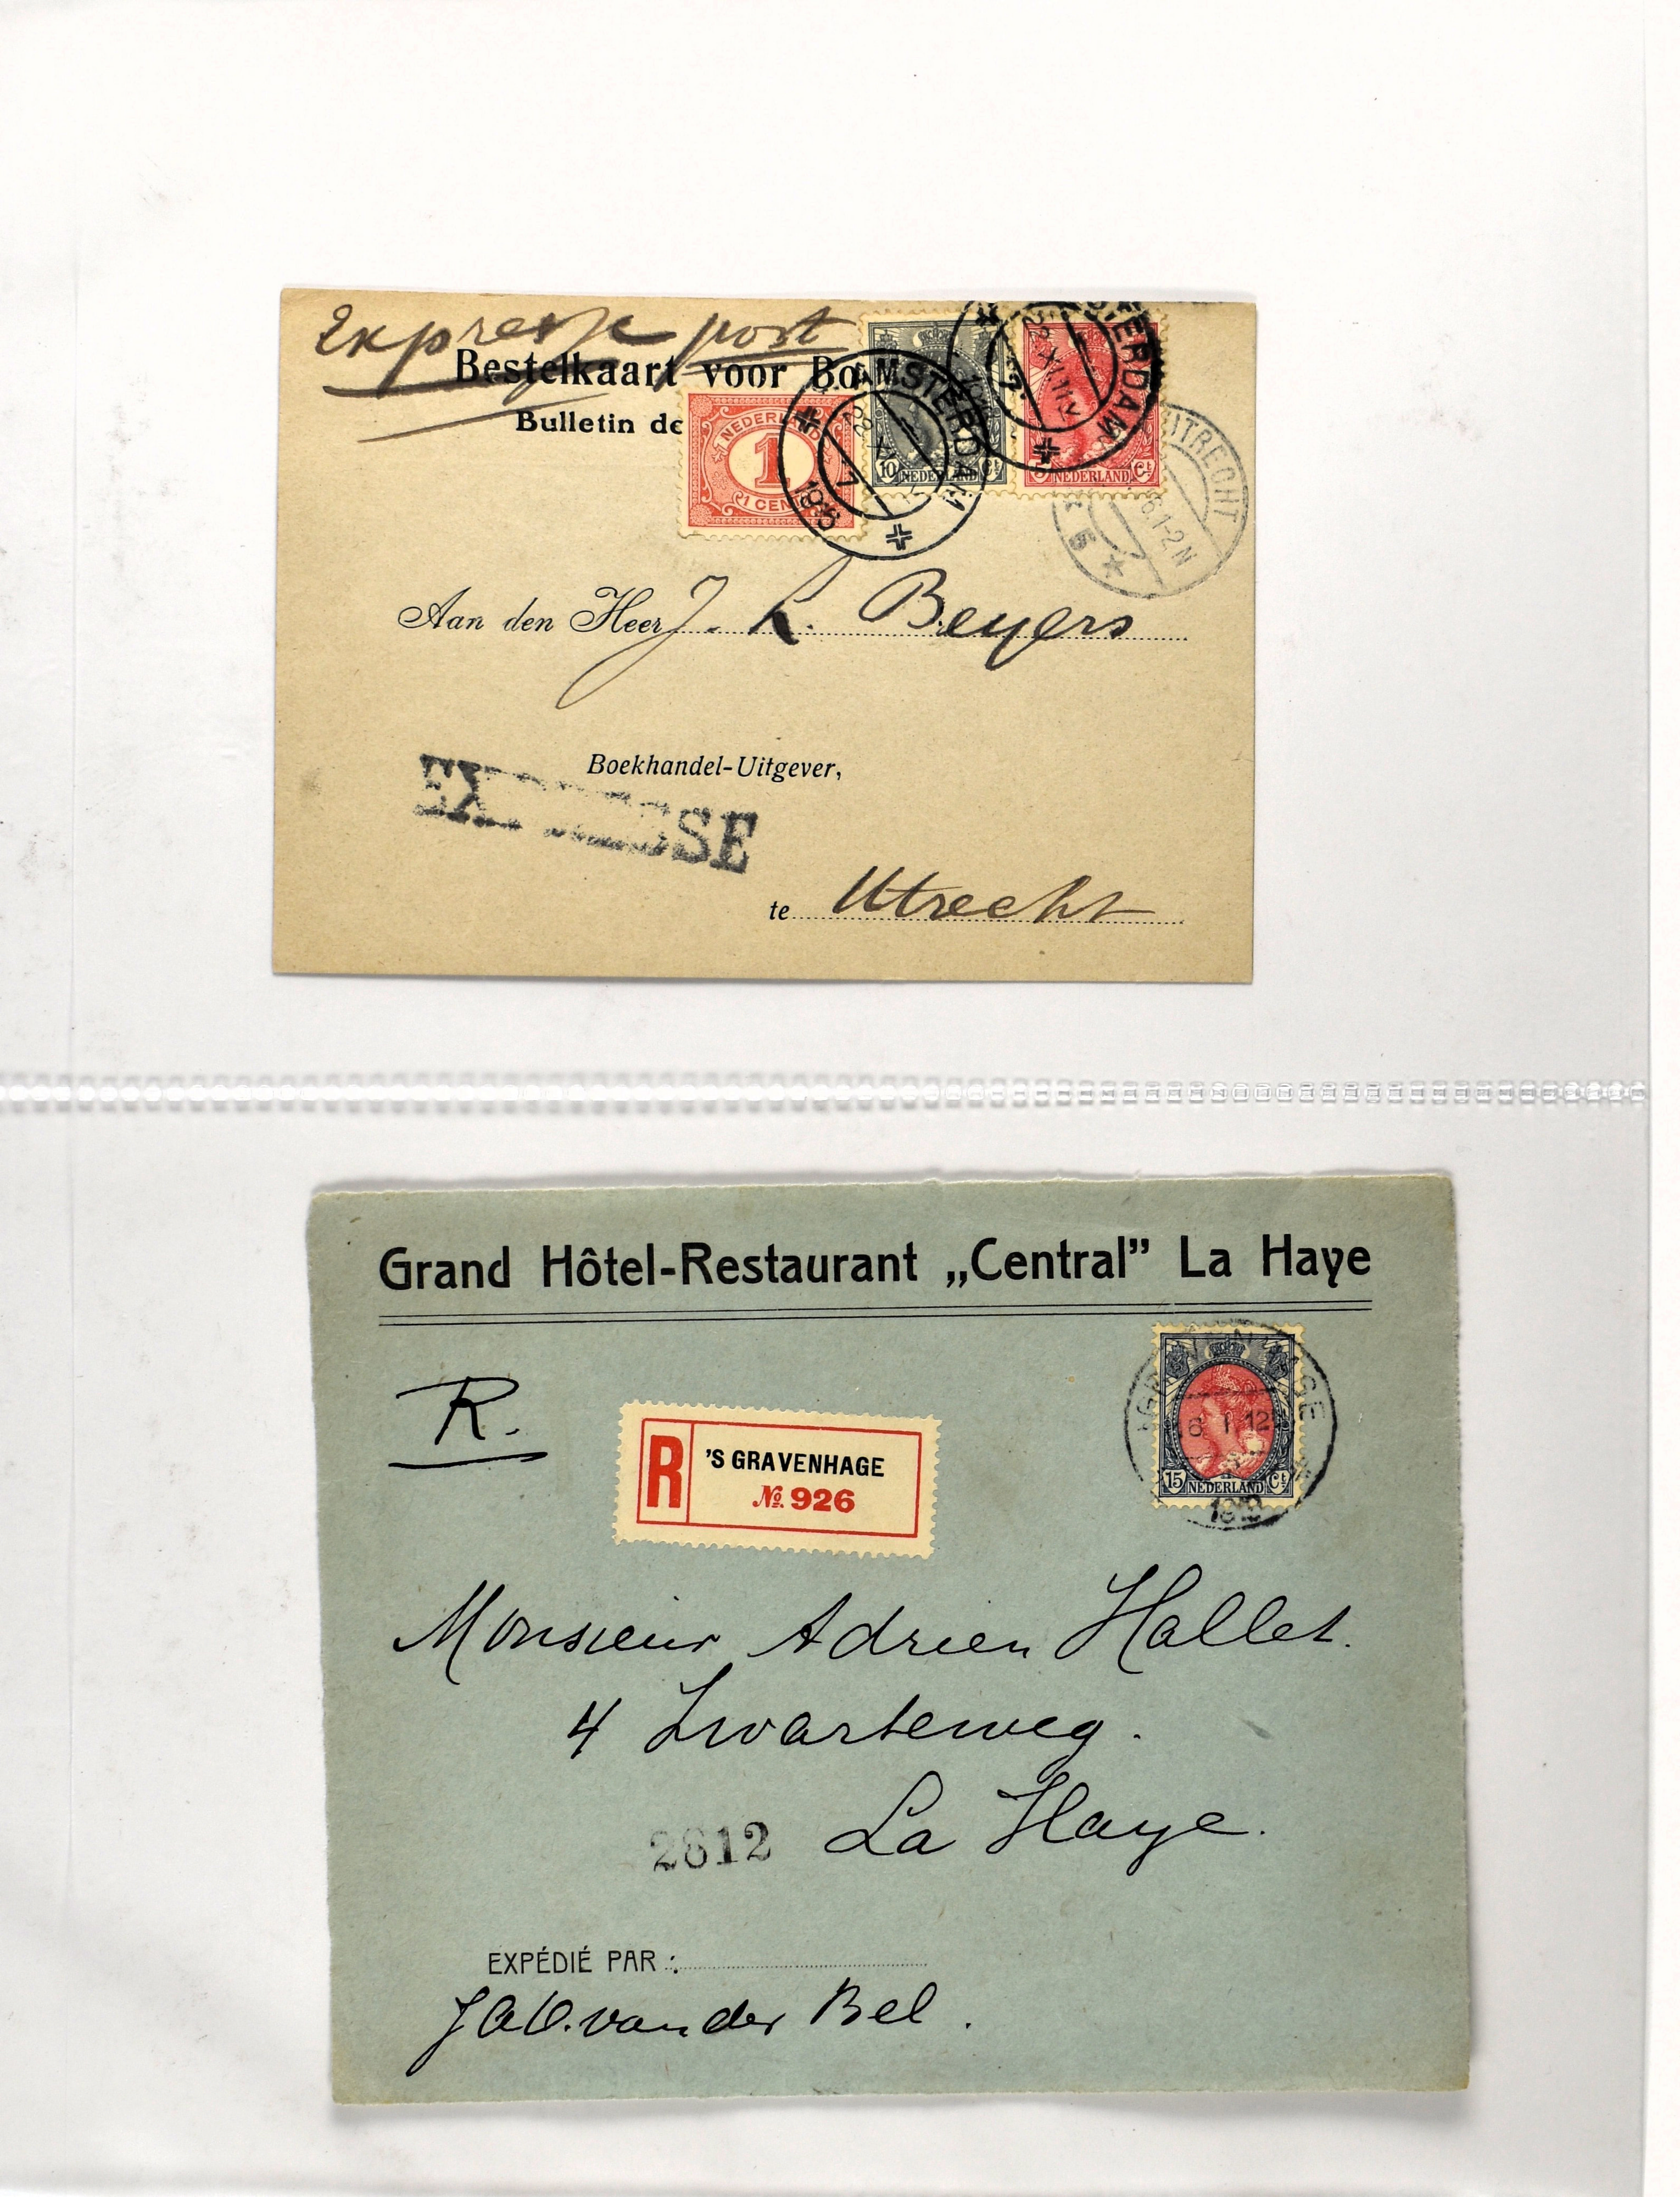 Expresse post
Bestelkaart voor Bo
Bulletin de
1 NEDERL 1
1 CENT
10 NEDERLAND Ct
5 NEDERLAND Ct
AMSTERDAM
AMSTERDAM
UTRECHT
6.1-2N
Aan den Heer J. L. Beyers
Boekhandel-Uitgever,
EXPRESSE
te Utrecht
Grand Hôtel-Restaurant „Central” La Haye
R.
R 'S GRAVENHAGE
No. 926
15 NEDERLAND Ct
Monsieur Adrien Hallet.
4 Zwarteweg.
La Haye.
2612
EXPÉDIÉ PAR :
van der Bel.